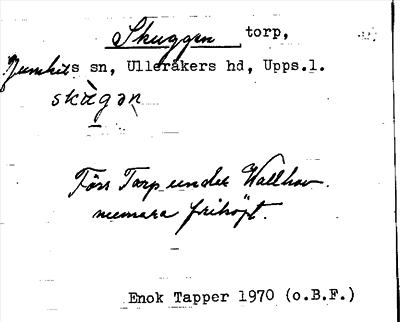 Skuggen torp,
Jumkils sn, Ulleråkers hd, Upps.l.
skùgən
Förr Torp under Wallhov.
numera friköpt.
Enok Tapper 1970 (o.B.F.)